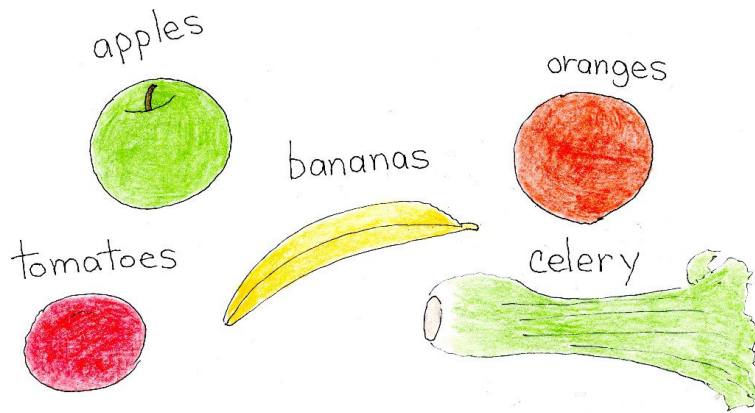 apples
oranges
bananas
tomatoes
celery